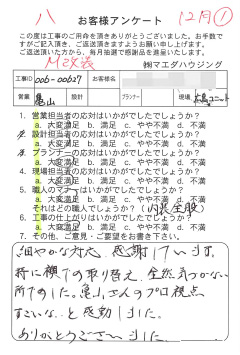 八
お客様アンケート
12月①
この度は工事のご用命を頂きありがとうございました。お手数で
すがご記入頂き、ご返送頂きますようお願い申し上げます。
ご返送頂いた方から、毎月抽選で感謝品を進呈いたします。
㈱マエダハウジング
工事ID 006-00627 お客様名
営業 亀山 設計 プランナー 現場
1. 営業担当者の応対はいかがでしたでしょうか?
a. 大変満足 b. 満足 c. やや不満 d. 不満
2. 設計担当者の応対はいかがでしたでしょうか?
a. 大変満足 b. 満足 c. やや不満 d. 不満
3. プランナーの応対はいかがでしたでしょうか?
a. 大変満足 b. 満足 c. やや不満 d. 不満
4. 現場担当者の応対はいかがでしたでしょうか?
a. 大変満足 b. 満足 c. やや不満 d. 不満
5. 職人のマナーはいかがでしたでしょうか?
a. 大変満足 b. 満足 c. やや不満 d. 不満
それはどの職人でしょうか? (内装全般)
6. 工事の仕上がりはいかがでしたでしょうか?
a. 大変満足 b. 満足 c. やや不満 d. 不満
7. その他、ご意見・ご要望をお書き下さい。
細やかな対応、感謝しています。
特に襖の取り替え、全然気づかない
所でした。亀山さんのプロ視点
すごいな、と感動しました。
ありがとうございました。